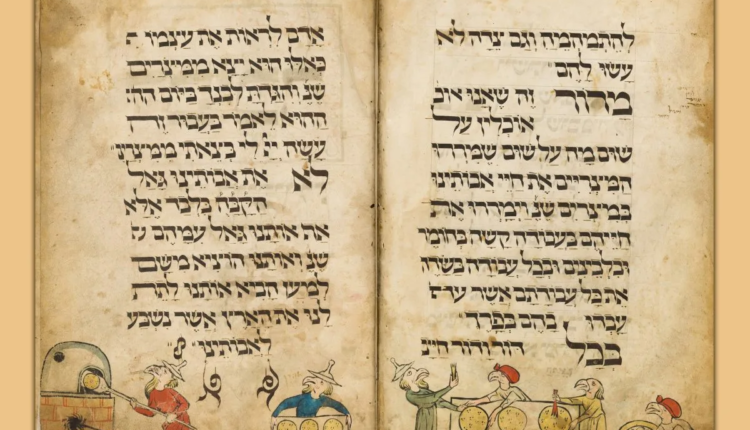 להתמהמה וגם צדה לא
עשו להם
מרור זה שאנו אוכ
אוכלין על
שום מה על שום שמררו
המיצריים את חיי אבותינו
במיצרים שנ וימררו את
חייהם בעבודה קשה בחומר
ובלבינים ובכל עבודה בשדה
את כל עבודתם אשר
עבדו בהם בפרך
בכל דור ודור חייב
אדם לראות את עצמו
כאלו הוא יצא ממיצרים
שנ והגדת לבנך ביום הה
ההוא לאמר בעבור זה
עשה יי לי בצאתי ממיצרי
לא את אבותינו גאל
הקבה בלבד אלא
את אותנו גאל עמהם
שנ ואותנו הוציא משם
למען הביא אותנו לתת
לנו את הארץ אשר נשבע
לאבותינו